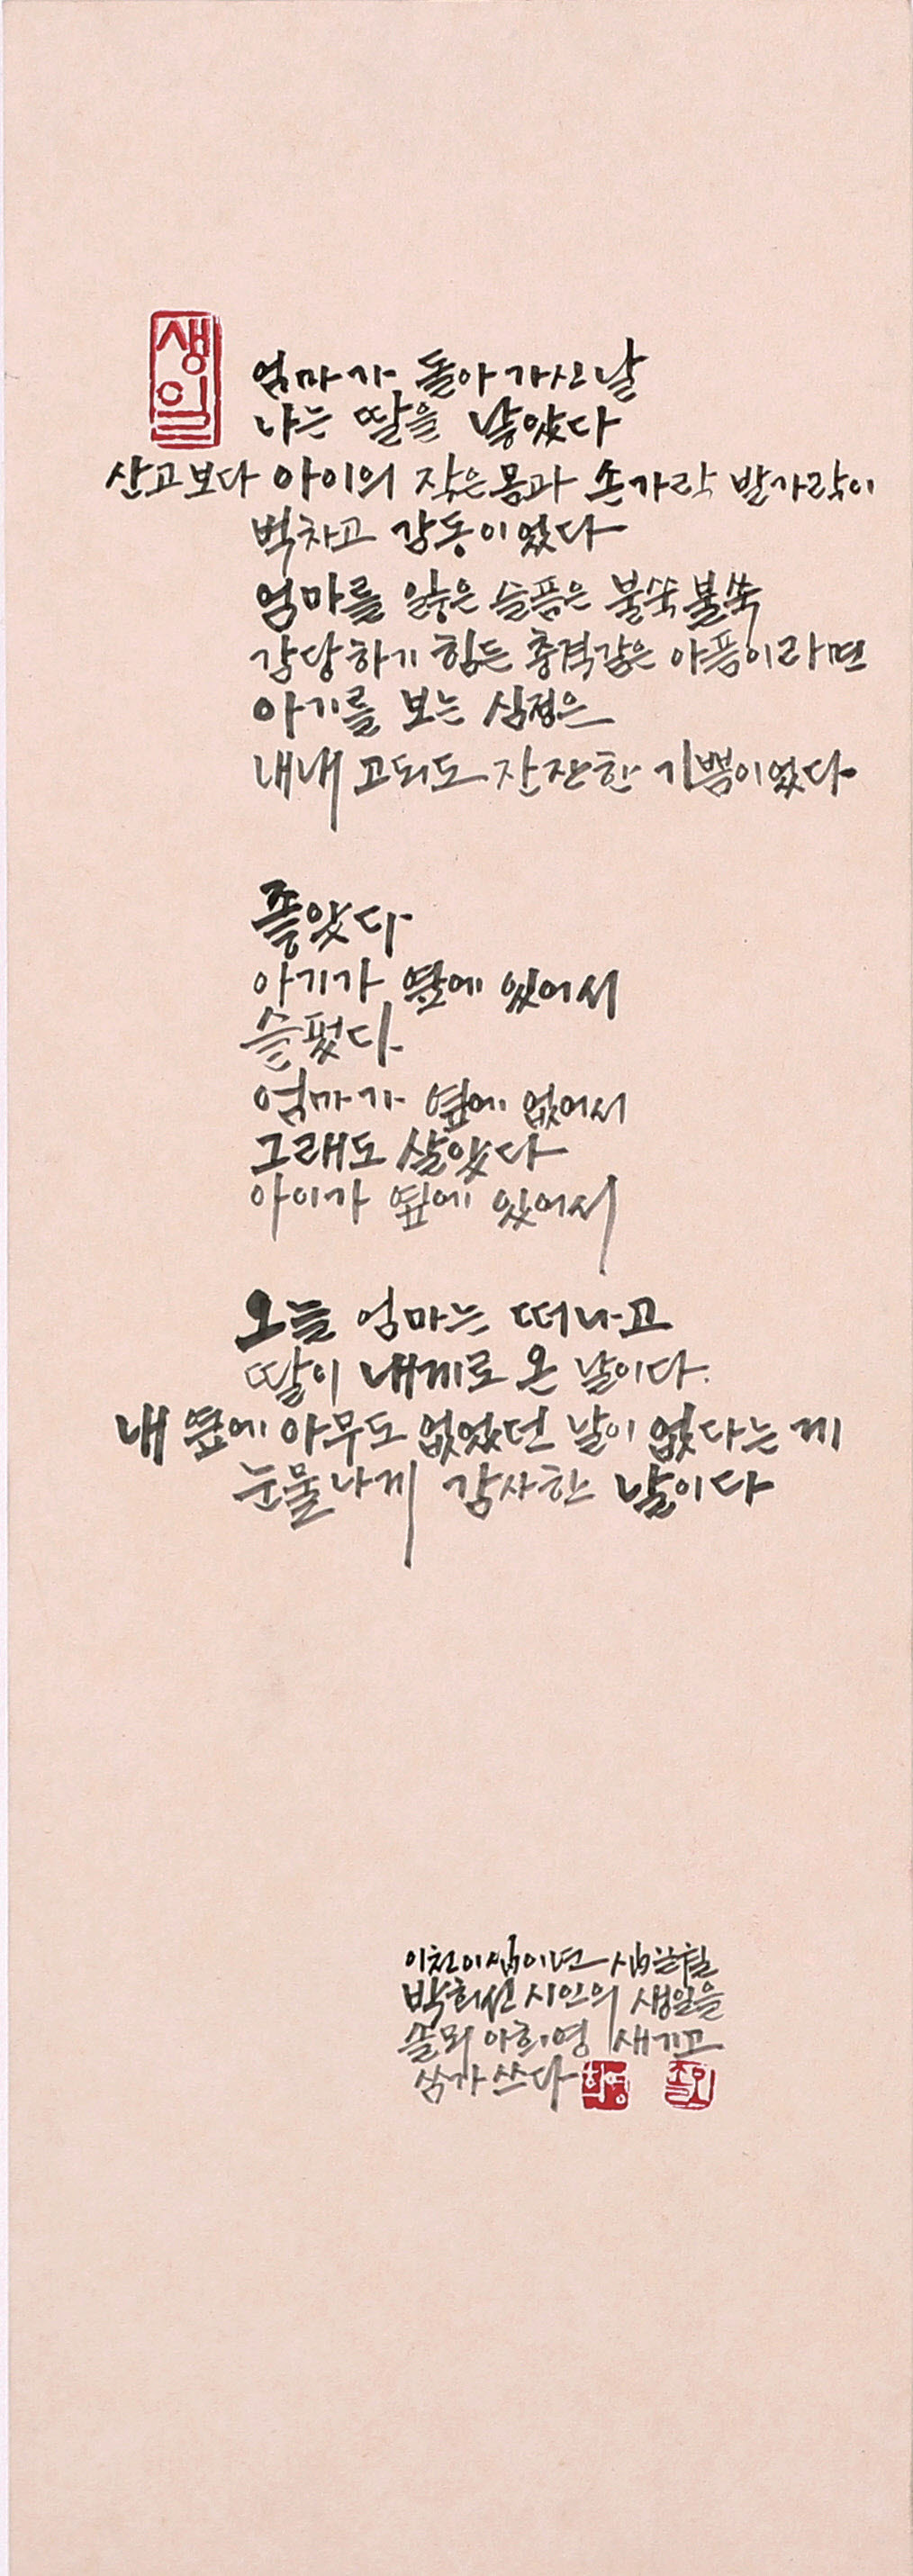 생일
엄마가 돌아가신 날
나는 딸을 낳았다
산고보다 아이의 작은 몸과 손가락 발가락이
벅차고 감동이었다
엄마를 잃은 슬픔은 불쑥불쑥
감당하기 힘든 충격같은 아픔이라면
아기를 보는 심정은
내내 고되도 잔잔한 기쁨이었다
좋았다
아기가 옆에 있어서
슬펐다
엄마가 옆에 없어서
그래도 살았다
아이가 옆에 있어서
오늘 엄마는 떠나고
딸이 내게로 온 날이다.
내 옆에 아무도 없었던 날이 없다는 게
눈물나게 감사한 날이다
이천이십이년
박희선 시인의 생일을
솔뫼 희영 새기고
삼가 쓰다 희영 솔뫼